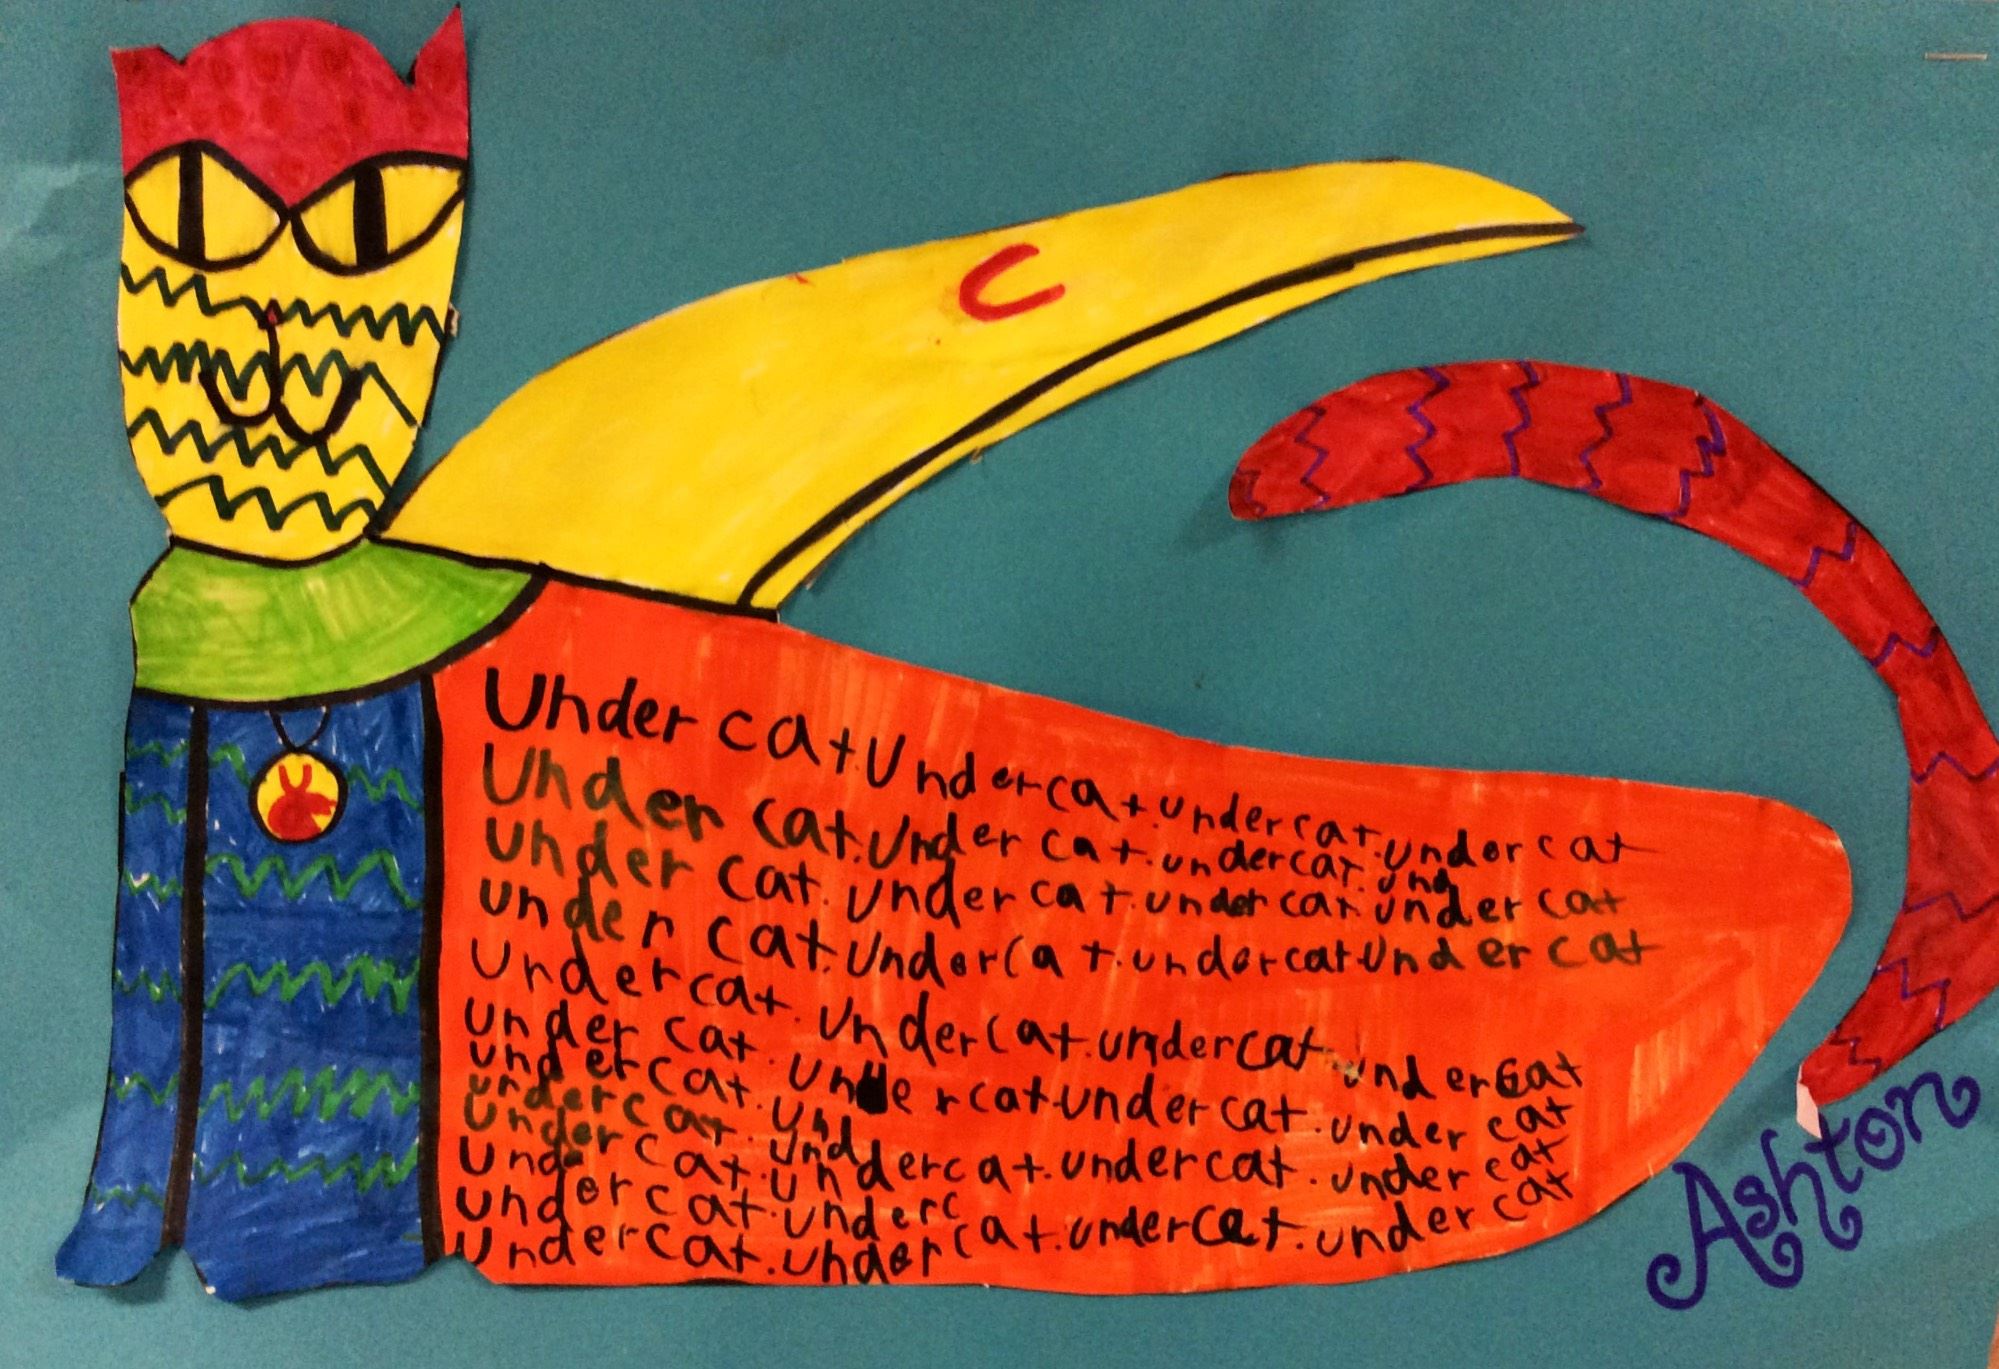 U
U
Under cat. Under cat. under cat. under cat
Under cat. Under cat. undercat. und
under cat. under cat. under cat. under cat
under cat. Undercat. undercat under cat
Undercat. Undercat. undercat. undercat
under cat. under cat. under cat. under cat
undercat. Und
undercat. Undercat. undercat. under cat
Undercat. Underc
undercat. Undercat. undercat. under cat
Undercat. Under
Ashton